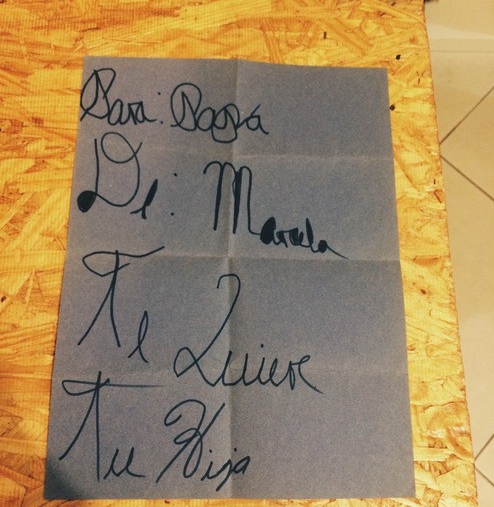 Para: Papá
De: Marcela
Te Quiere
Tu Hija